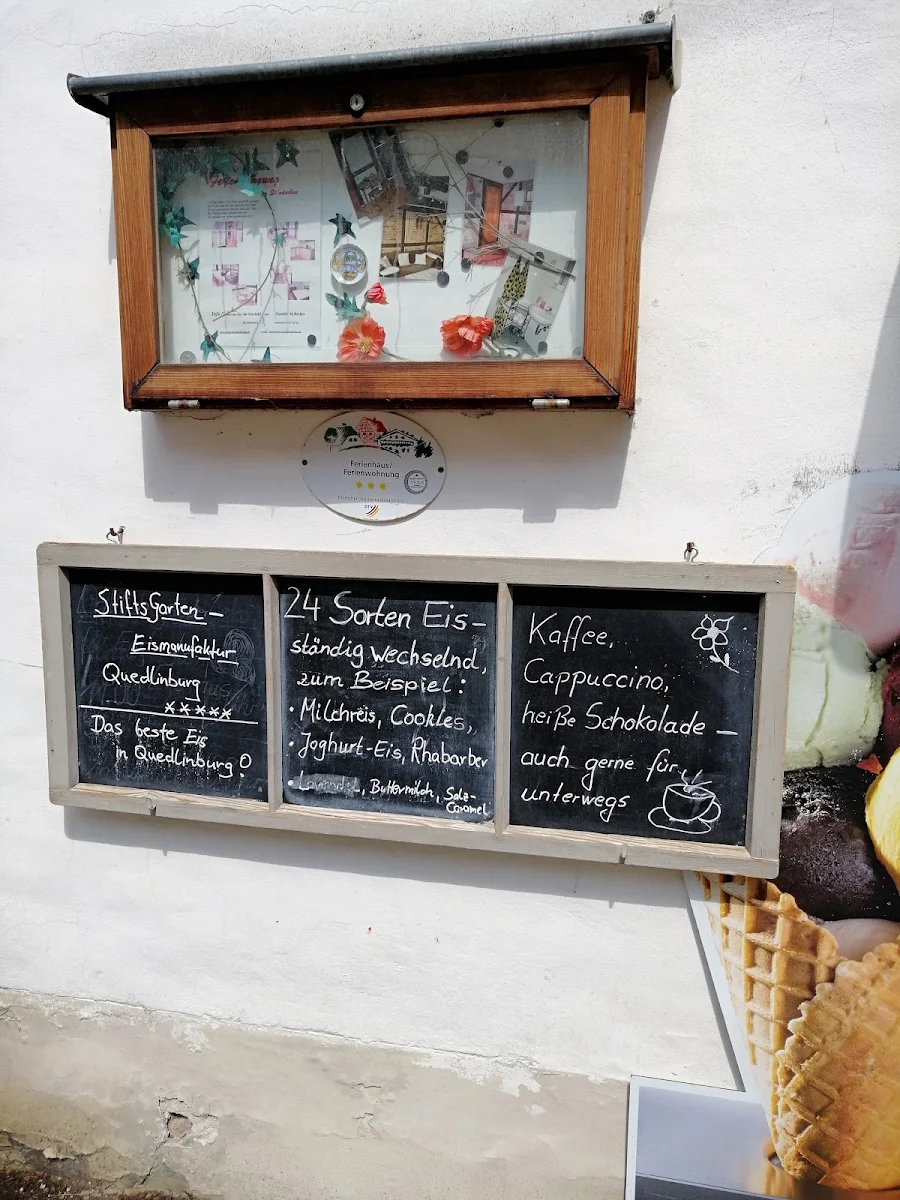 Ferienhaus/
Ferienwohnung
StiftsGarten –
Eismanufaktur
Quedlinburg
*****
Das beste Eis
in Quedlinburg?
24 Sorten Eis-
ständig wechselnd,
zum Beispiel:
• Milchreis, Cookies,
• Joghurt-Eis, Rhabarber
• Lavendel, Buttermilch, Salz-
Caramel
Kaffee,
Cappuccino,
heiße Schokolade –
auch gerne für
unterwegs